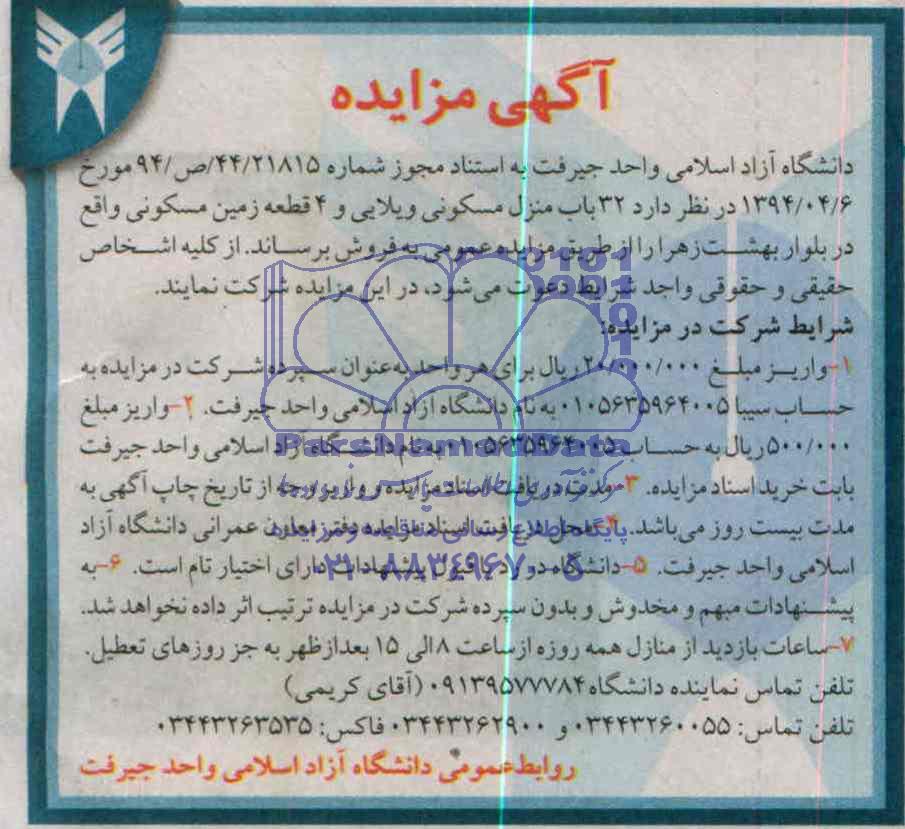 آگهی مزایده
دانشگاه آزاد اسلامی واحد جیرفت به استناد مجوز شماره ۴۴/۲۱۸۱۵/ص/۹۴ مورخ
۱۳۹۴/۰۴/۶ در نظر دارد ۳۲ باب منزل مسکونی ویلایی و ۴ قطعه زمین مسکونی واقع
در بلوار بهشت زهرا را از طریق مزایده عمومی به فروش برساند. از کلیه اشخاص
حقیقی و حقوقی واجد شرایط دعوت می‌شود، در این مزایده شرکت نمایند.
شرایط شرکت در مزایده:
۱-واریز مبلغ ۲۰/۰۰۰/۰۰۰ ریال برای هر واحد به‌عنوان سپرده شرکت در مزایده به
حساب سیبا ۰۱۰۵۶۳۵۹۶۴۰۰۵ به نام دانشگاه آزاد اسلامی واحد جیرفت. ۲-واریز مبلغ
۵۰۰/۰۰۰ ریال به حساب ۰۱۰۵۶۳۵۹۶۴۰۰۵ به نام دانشگاه آزاد اسلامی واحد جیرفت
بابت خرید اسناد مزایده. ۳-مدت دریافت اسناد مزایده و واریز وجه از تاریخ چاپ آگهی به
مدت بیست روز می‌باشد. ۴-محل دریافت اسناد مزایده دفتر معاون عمرانی دانشگاه آزاد
اسلامی واحد جیرفت. ۵-دانشگاه در رد یا قبول پیشنهادات دارای اختیار تام است. ۶-به
پیشنهادات مبهم و مخدوش و بدون سپرده شرکت در مزایده ترتیب اثر داده نخواهد شد.
۷-ساعات بازدید از منازل همه روزه از ساعت ۸ الی ۱۵ بعدازظهر به جز روزهای تعطیل.
تلفن تماس نماینده دانشگاه ۰۹۱۳۹۵۷۷۷۸۴ (آقای کریمی)
تلفن تماس: ۰۳۴۴۳۲۶۰۰۵۵ و ۰۳۴۴۳۲۶۲۹۰۰ فاکس: ۰۳۴۴۳۲۶۳۵۳۵
روابط‌عمومی دانشگاه آزاد اسلامی واحد جیرفت
ParsNamadData
پایگاه اطلاع رسانی مناقصه و مزایده
۰۲۱-۸۸۳۴۹۶۷۰-۵